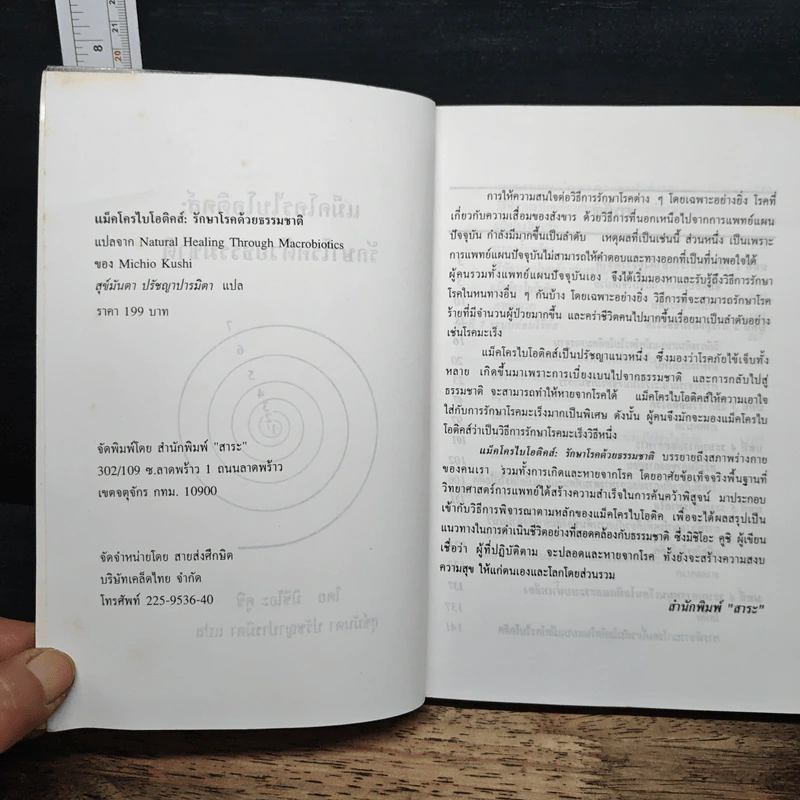 แม็คโครไบโอติคส์: รักษาโรคด้วยธรรมชาติ
แปลจาก Natural Healing Through Macrobiotics
ของ Michio Kushi
สุข์มันตา ปรัชญาปารมิตา แปล
ราคา 199 บาท
7
6
5
4
3
จัดพิมพ์โดย สำนักพิมพ์ "สาระ"
302/109 ซ.ลาดพร้าว 1 ถนนลาดพร้าว
เขตจตุจักร กทม. 10900
จัดจำหน่ายโดย สายส่งศึกษิต
บริษัทเคล็ดไทย จำกัด
โทรศัพท์ 225-9536-40
การให้ความสนใจต่อวิธีการรักษาโรคต่าง ๆ โดยเฉพาะอย่างยิ่ง โรคที่
เกี่ยวกับความเสื่อมของสังขาร ด้วยวิธีการที่นอกเหนือไปจากการแพทย์แผน
ปัจจุบัน กำลังมีมากขึ้นเป็นลำดับ เหตุผลที่เป็นเช่นนี้ ส่วนหนึ่ง เป็นเพราะ
การแพทย์แผนปัจจุบันไม่สามารถให้คำตอบและทางออกที่เป็นที่น่าพอใจได้
ผู้คนรวมทั้งแพทย์แผนปัจจุบันเอง จึงได้เริ่มมองหาและรับรู้ถึงวิธีการรักษา
โรคในหนทางอื่น ๆ กันบ้าง โดยเฉพาะอย่างยิ่ง วิธีการที่จะสามารถรักษาโรค
ร้ายที่มีจำนวนผู้ป่วยมากขึ้น และคร่าชีวิตคนไปมากขึ้นเรื่อยมาเป็นลำดับอย่าง
เช่นโรคมะเร็ง
แม็คโครไบโอติคส์เป็นปรัชญาแนวหนึ่ง ซึ่งมองว่าโรคภัยไข้เจ็บทั้ง
หลาย เกิดขึ้นมาเพราะการเบี่ยงเบนไปจากธรรมชาติ และการกลับไปสู่
ธรรมชาติ จะสามารถทำให้หายจากโรคได้ แม็คโครไบโอติคส์ให้ความเอาใจ
ใส่กับการรักษาโรคมะเร็งมากเป็นพิเศษ ดังนั้น ผู้คนจึงมักจะมองแม็คโครไบ
โอติคส์ว่าเป็นวิธีการรักษาโรคมะเร็งวิธีหนึ่ง
แม็คโครไบโอติคส์: รักษาโรคด้วยธรรมชาติ บรรยายถึงสภาพร่างกาย
ของคนเรา รวมทั้งการเกิดและหายจากโรค โดยอาศัยข้อเท็จจริงพื้นฐานที่
วิทยาศาสตร์การแพทย์ได้สร้างความสำเร็จในการค้นคว้าพิสูจน์ มาประกอบ
เข้ากับวิธีการพิจารณาตามหลักของแม็คโครไบโอติค เพื่อจะได้ผลสรุปเป็น
แนวทางในการดำเนินชีวิตอย่างที่สอดคล้องกับธรรมชาติ ซึ่งมิชิโอะ คูชิ ผู้เขียน
เชื่อว่า ผู้ที่ปฏิบัติตาม จะปลอดและหายจากโรค ทั้งยังจะสร้างความสงบ
ความสุข ให้แก่ตนเองและโลกโดยส่วนรวม
สำนักพิมพ์ "สาระ"
8
20
21